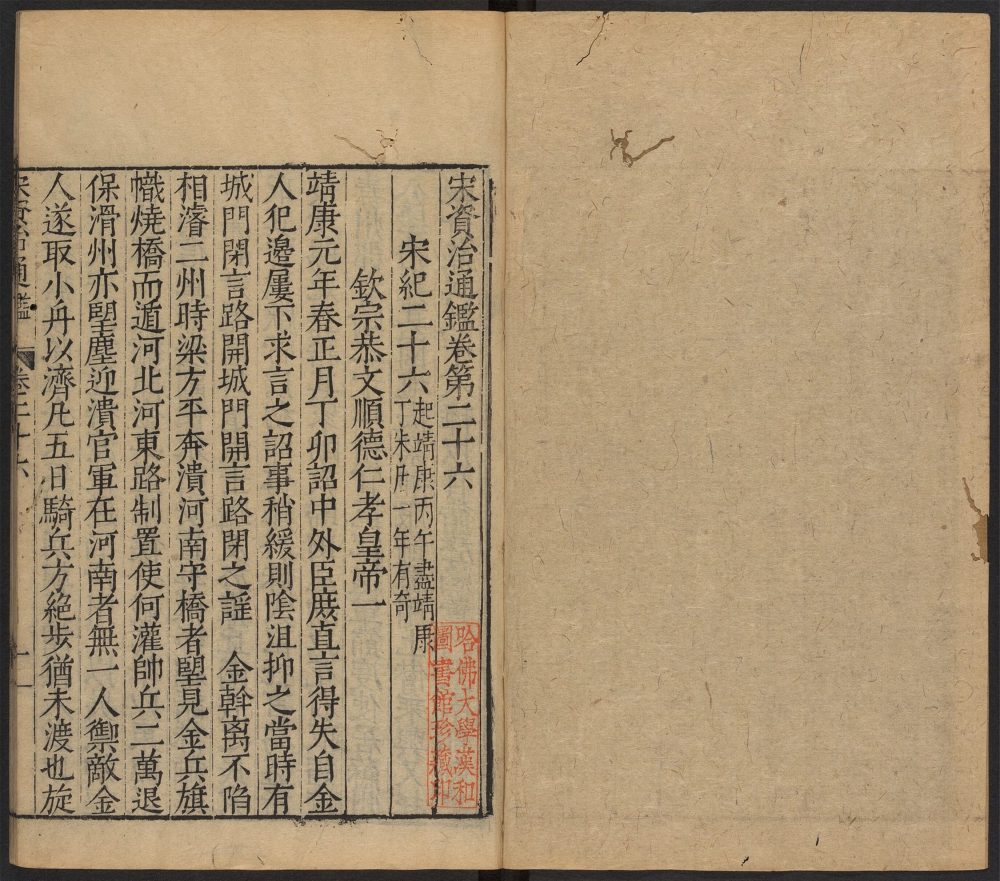 宋資治通鑑卷第二十六
宋紀二十六
起靖康丙午盡靖康
丁未凡一年有奇
欽宗恭文順德仁孝皇帝一
靖康元年春正月丁卯詔中外臣庶直言得失自金
人犯邊屢下求言之詔事稍緩則陰沮抑之當時有
城門閉言路開城門開言路閉之謡 金斡离不陷
相濬二州時梁方平奔潰河南守橋者朢見金兵旗
幟燒橋而遁河北河東路制置使何灌帥兵二萬退
保滑州亦朢塵迎潰官軍在河南者無一人禦敵金
人遂取小舟以濟凡五日騎兵方絶步猶未渡也旋
宋資治通鑑 卷二十六 一
哈佛大學漢和
圖書館珍藏印